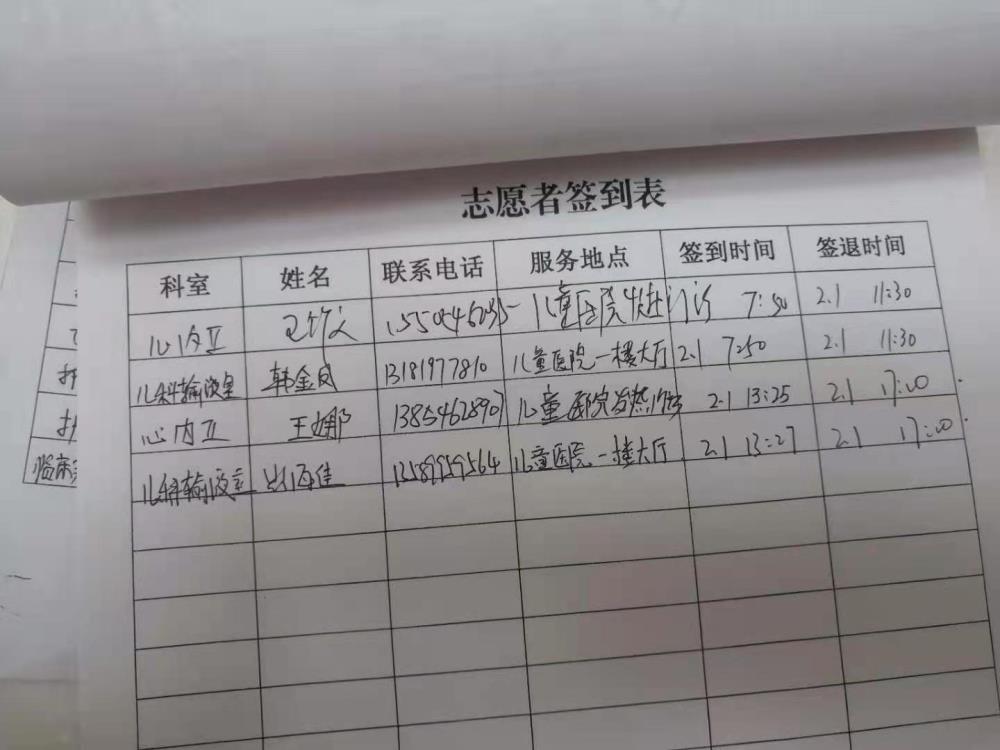 志愿者签到表
科室 姓名 联系电话 服务地点 签到时间 签退时间
心内Ⅱ 儿童医院 门诊 7:50 2.1 11:30
儿科输液室 韩金凤 13181977810 儿童医院一楼大厅 2.1 7:50 2.1 11:30
心内Ⅱ 王娜 13854628907 儿童医院发热门诊 2.1 13:25 2.1 17:00
儿科输液室 13589959564 儿童医院一楼大厅 2.1 13:27 2.1 17:00
临床